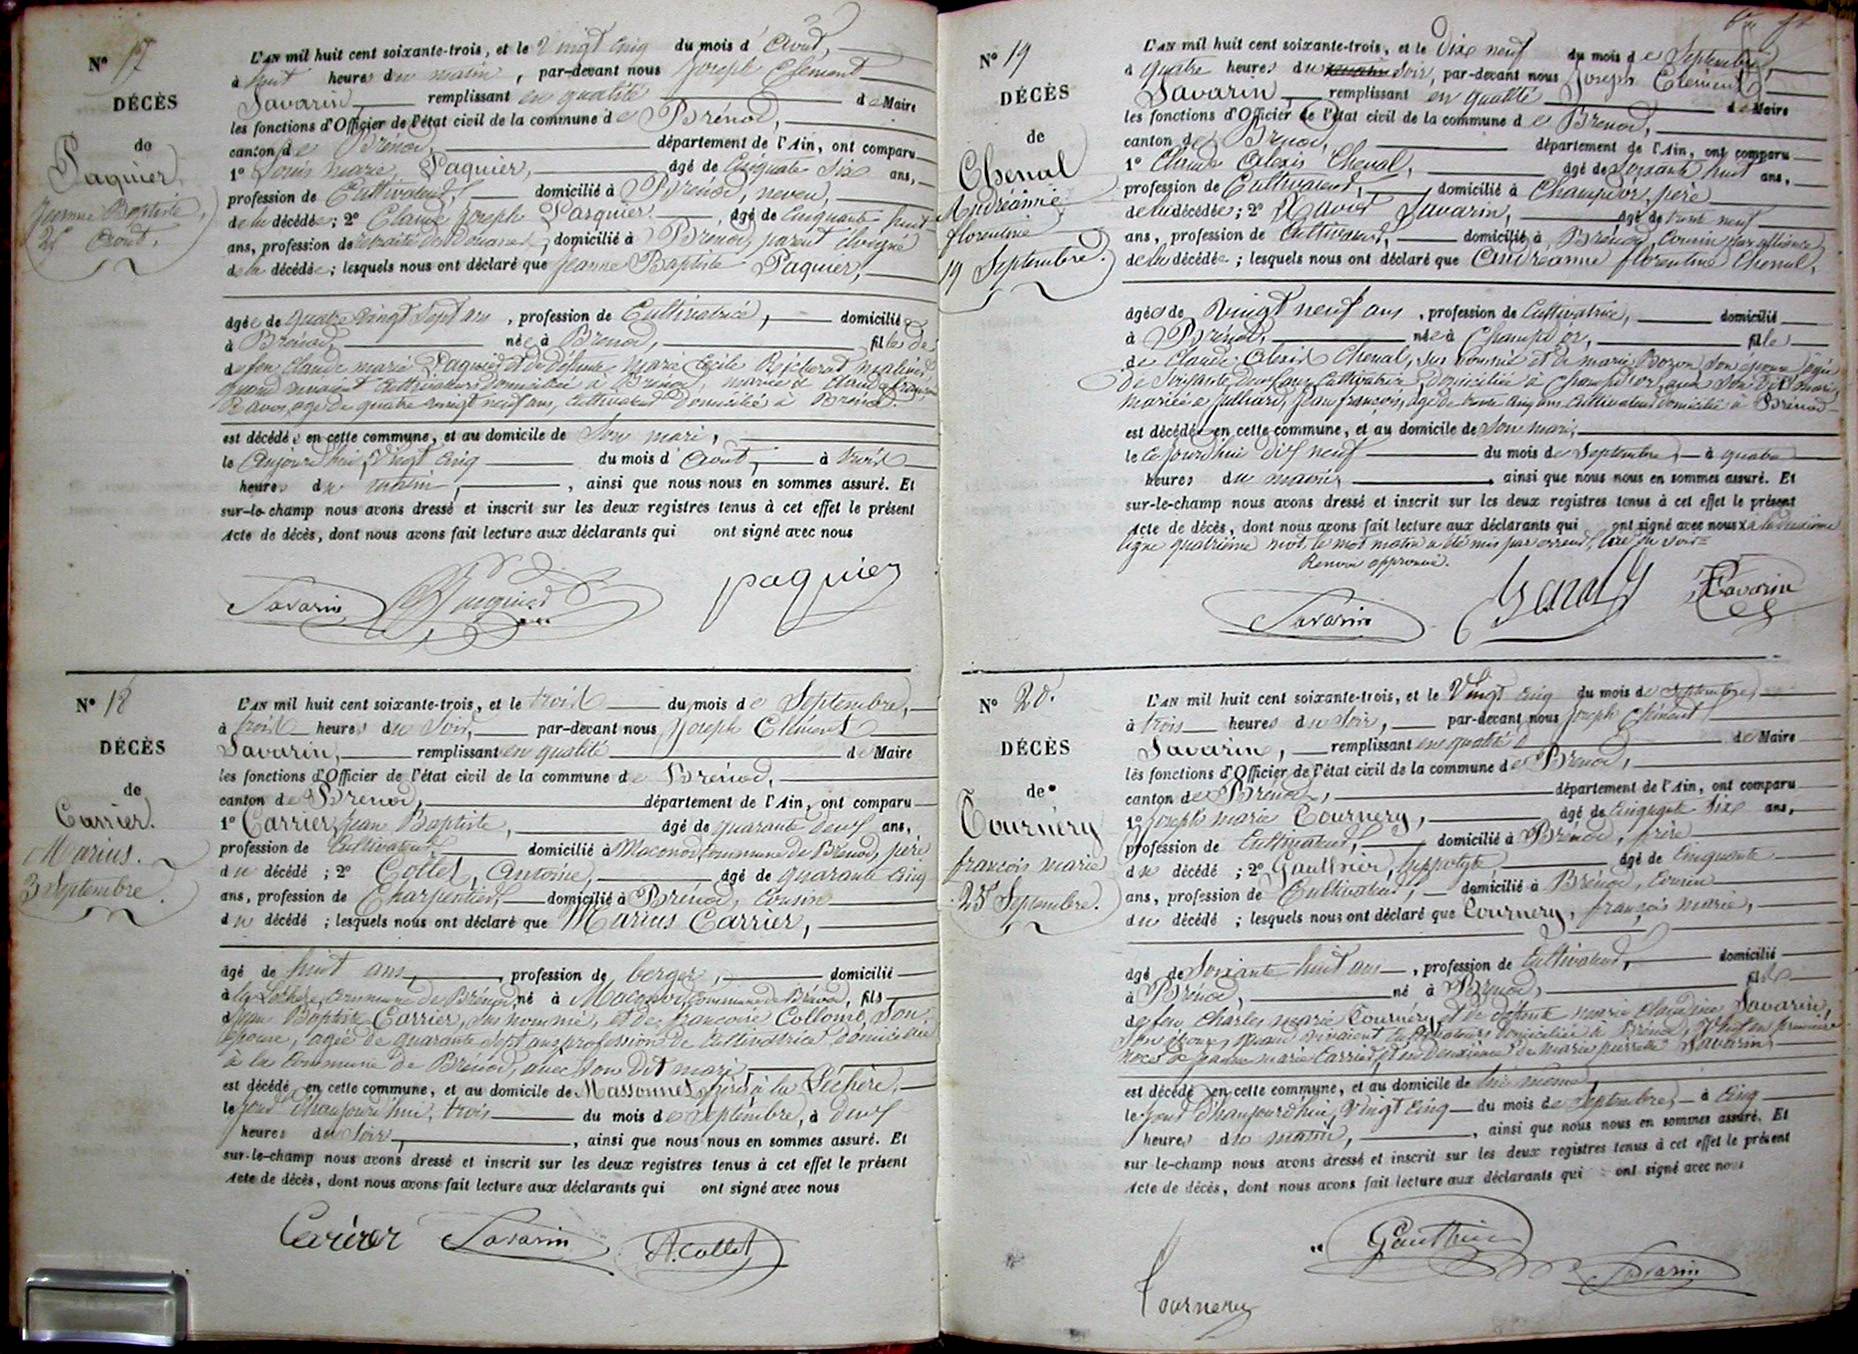 Nº 17
DÉCÈS
de
Paquier,
Jeanne Baptiste,
25 Août.
L'AN mil huit cent soixante-trois, et le Vingt cinq du mois d'Août,
à huit heures du matin, par-devant nous Joseph Clément
Savarin, remplissant en qualité de Maire
les fonctions d'Officier de l'état civil de la commune de Brénod,
canton de Brénod, département de l'Ain, ont comparu
1º Louis marie Paquier, âgé de Cinquante six ans,
profession de Cultivateur, domicilié à Brénod, neveu,
de la décédée; 2º Claude Joseph Pasquier, âgé de Cinquante huit
ans, profession de retraité des Douanes, domicilié à Brénod, parent éloigné
de la décédée; lesquels nous ont déclaré que Jeanne Baptiste Paquier,
âgée de quatre vingt sept ans, profession de Cultivatrice, domiciliée
à Brénod, née à Brénod, fille de
de feu Claude marie Paquier et de défunte Marie Cécile
quand vivaient Cultivateurs domiciliés à Brénod, mariée à Claude françois
Ravos, âgé de quatre vingt neuf ans, Cultivateur domicilié à Brénod.
est décédée en cette commune, et au domicile de Son mari,
le aujourd'hui, Vingt cinq du mois d'Août, à trois
heures du matin, ainsi que nous nous en sommes assuré. Et
sur-le-champ nous avons dressé et inscrit sur les deux registres tenus à cet effet le présent
Acte de décès, dont nous avons fait lecture aux déclarants qui ont signé avec nous
Savarin paquier
Nº 18
DÉCÈS
de
Carrier.
Marius.
3 Septembre.
L'AN mil huit cent soixante-trois, et le trois du mois de Septembre,
à trois heures du Soir, par-devant nous Joseph Clément
Savarin, remplissant en qualité de Maire
les fonctions d'Officier de l'état civil de la commune de Brénod,
canton de Brénod, département de l'Ain, ont comparu
1º Carrier, Jean Baptiste, âgé de quarante deux ans,
profession de Cultivateur, domicilié à Maconod commune de Brénod, père
du décédé; 2º Collet, Antoine, âgé de quarante cinq
ans, profession de Charpentier, domicilié à Brénod, Cousin
du décédé; lesquels nous ont déclaré que Marius Carrier,
âgé de huit ans, profession de berger, domicilié
à la Léchère, Commune de Brénod, né à Maconod, commune de Brénod, fils
de Jean Baptiste Carrier, sus nommé, et de francoise Collomb, Son
épouse, âgée de quarante sept ans profession de Cultivatrice domiciliée
à la Commune de Brénod, avec Son Dit mari,
est décédé en cette commune, et au domicile de Massonnet, à la Léchère,
le jour d'haujourd'hui, trois du mois de Septembre, à deux
heures du Soir, ainsi que nous nous en sommes assuré. Et
sur-le-champ nous avons dressé et inscrit sur les deux registres tenus à cet effet le présent
Acte de décès, dont nous avons fait lecture aux déclarants qui ont signé avec nous
Carrier Savarin A. Collet
Nº 19
DÉCÈS
de
Cheval
Andréanne
florentine
19 Septembre.
L'AN mil huit cent soixante-trois, et le Dix neuf du mois de Septembre,
à quatre heures du matin Soir, par-devant nous Joseph Clément
Savarin remplissant en qualité de Maire
les fonctions d'Officier de l'état civil de la commune de Brénod,
canton de Brénod, département de l'Ain, ont comparu
1º Claude Alexis Cheval, âgé de Soixante huit ans,
profession de Cultivateur, domicilié à Champdor, père
de la décédée; 2º Xavier Savarin, âgé de trente neuf
ans, profession de Cultivateur, domicilié à Brénod, Cousin par alliance
de la décédée; lesquels nous ont déclaré que Andréanne florentine Cheval,
âgée de Vingt neuf ans, profession de Cultivatrice, domicilié
à Brénod, née à Champdor, fille
de Claude Alexis Cheval, sus nommé et de marie Bozon Son épouse âgée
de Soixante deux ans Cultivatrice, domiciliée à Champdor, avec Son Dit mari,
mariée à Julliard, Jean françois, âgé de trente cinq ans Cultivateur domicilié à Brénod
est décédée en cette commune, et au domicile de Son mari,
le ce jourd'hui dix neuf du mois de Septembre, à quatre
heures du matin, ainsi que nous nous en sommes assuré. Et
sur-le-champ nous avons dressé et inscrit sur les deux registres tenus à cet effet le présent
Acte de décès, dont nous avons fait lecture aux déclarants qui ont signé avec nous x a la deuxième
ligne quatrième mot, le mot matin a été mis par erreur, lire du Soir=
Renvoi approuvé.
Savarin X Savarin
Nº 20.
DÉCÈS
de
Tournery
françois marie
25 Septembre.
L'AN mil huit cent soixante-trois, et le Vingt cinq du mois de Septembre,
à trois heures du Soir, par-devant nous Joseph Clément
Savarin, remplissant en qualité de Maire
les fonctions d'Officier de l'état civil de la commune de Brénod,
canton de Brénod, département de l'Ain, ont comparu
1º Joseph marie Tournery, âgé de Cinquante six ans,
profession de Cultivateur, domicilié à Brénod, frère
du décédé; 2º Gauthier, hyppolyte âgé de Cinquante
ans, profession de Cultivateur, domicilié à Brénod, Cousin
du décédé; lesquels nous ont déclaré que Tournery, françois marie,
âgé de Soixante huit ans, profession de Cultivateur, domicilié
à Brénod, né à Brénod, fils
de feu Charles marie Tournery et de défunte marie Claudine Savarin,
Son épouse, quand vivaient Cultivateurs domiciliés à Brénod, Veuf en première
noce de Jeanne marie Carrier, et en deuxième de marie pierrette Savarin,
est décédé en cette commune, et au domicile de lui même,
le jour d'haujourd'hui, Vingt cinq du mois de Septembre, à Cinq
heures du matin, ainsi que nous nous en sommes assuré. Et
sur-le-champ nous avons dressé et inscrit sur les deux registres tenus à cet effet le présent
Acte de décès, dont nous avons fait lecture aux déclarants qui ont signé avec nous
Gauthier Savarin
Tournery